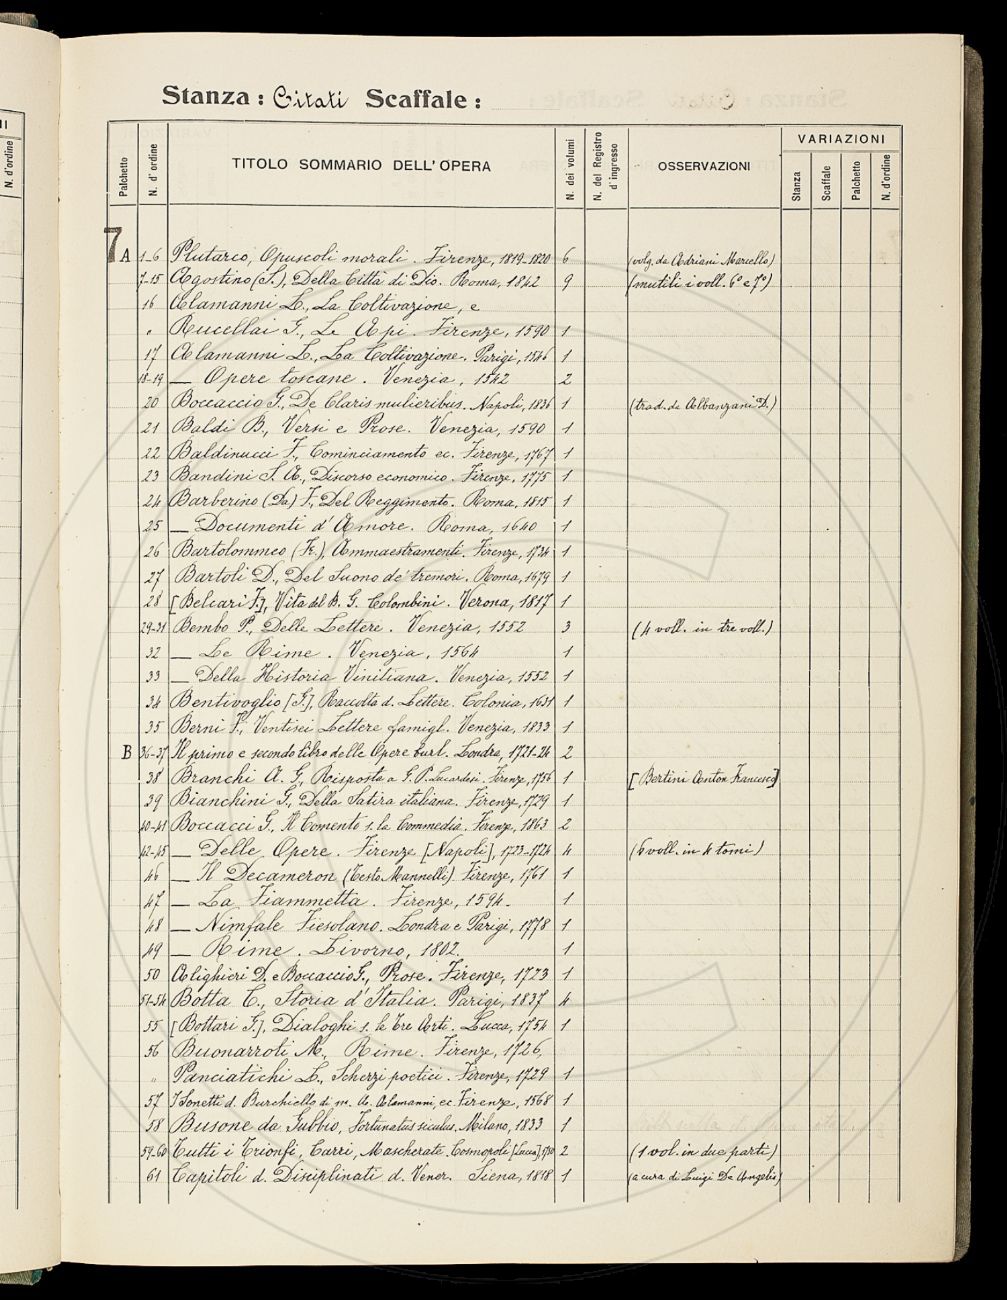 Stanza: Citati Scaffale:
Palchetto N. d'ordine TITOLO SOMMARIO DELL'OPERA N. dei volumi N. del Registro d'ingresso OSSERVAZIONI VARIAZIONI
Stanza Scaffale Palchetto N. d'ordine
7 A 1-6 Plutarco, Opuscoli morali. Firenze, 1819-1820 6 (volg. da Adriani Marcello)
7-15 Agostino (S.), Della Città di Dio. Roma, 1842 9 (mutili i voll. 6° e 7°)
16 Alamanni L., La Coltivazione, e
" Rucellai G., Le Api. Firenze, 1590 1
17 Alamanni L., La Coltivazione. Parigi, 1546 1
18-19 — Opere toscane. Venezia, 1542 2
20 Boccaccio G., De Claris mulieribus. Napoli, 1836 1 (trad. da Albanzani D.)
21 Baldi B., Versi e Prose. Venezia, 1590 1
22 Baldinucci F., Cominciamento ec. Firenze, 1767 1
23 Bandini S. A., Discorso economico. Firenze, 1775 1
24 Barberino (Da) F., Del Reggimento. Roma, 1815 1
25 — Documenti d'Amore. Roma, 1640 1
26 Bartolommeo (Fr.), Ammaestramenti. Firenze, 1734 1
27 Bartoli D., Del Suono de' tremori. Roma, 1679 1
28 [Belcari F.], Vita del B. G. Colombini. Verona, 1817 1
29-31 Bembo P., Delle Lettere. Venezia, 1552 3 (4 voll. in tre voll.)
32 — Le Rime. Venezia, 1564 1
33 — Della Historia Vinitiana. Venezia, 1552 1
34 Bentivoglio [G.], Raccolta d. Lettere. Colonia, 1631 1
35 Berni F., Ventisei Lettere famigl. Venezia, 1833 1
B 36-37 Il primo e secondo libro delle Opere burl. Londra, 1721-24 2
38 Branchi A. G., Risposta a G. P. Lucardesi. Firenze, 1756 1 [Bertini Anton Francesco]
39 Bianchini G., Della Satira italiana. Firenze, 1729 1
40-41 Boccacci G., Il Comento s. la Commedia. Firenze, 1863 2
42-45 — Delle Opere. Firenze [Napoli], 1723-1724 4 (6 voll. in 4 tomi)
46 — Il Decameron (Testo Mannelli) Firenze, 1761 1
47 — La Fiammetta. Firenze, 1594. 1
48 — Nimfale Fiesolano. Londra e Parigi, 1778 1
49 — Rime. Livorno, 1802. 1
50 Alighieri D. e Boccaccio G., Prose. Firenze, 1723 1
51-54 Botta C., Storia d'Italia. Parigi, 1837 4
55 [Bottari G.], Dialoghi s. le Tre Arti. Lucca, 1754 1
56 Buonarroti M., Rime. Firenze, 1726.
" Panciatichi L., Scherzi poetici. Firenze, 1729 1
57 I Sonetti d. Burchiello di m. A. Alamanni, ec. Firenze, 1568 1
58 Busone da Gubbio, Fortunatus siculus. Milano, 1833 1
59-60 Tutti i Trionfi, Carri, Mascherate. Cosmopoli [Lucca], 1750 2 (1 vol. in due parti)
61 Capitoli d. Disciplinati d. Vener. Siena, 1818 1 (a cura di Luigi De Angelis)